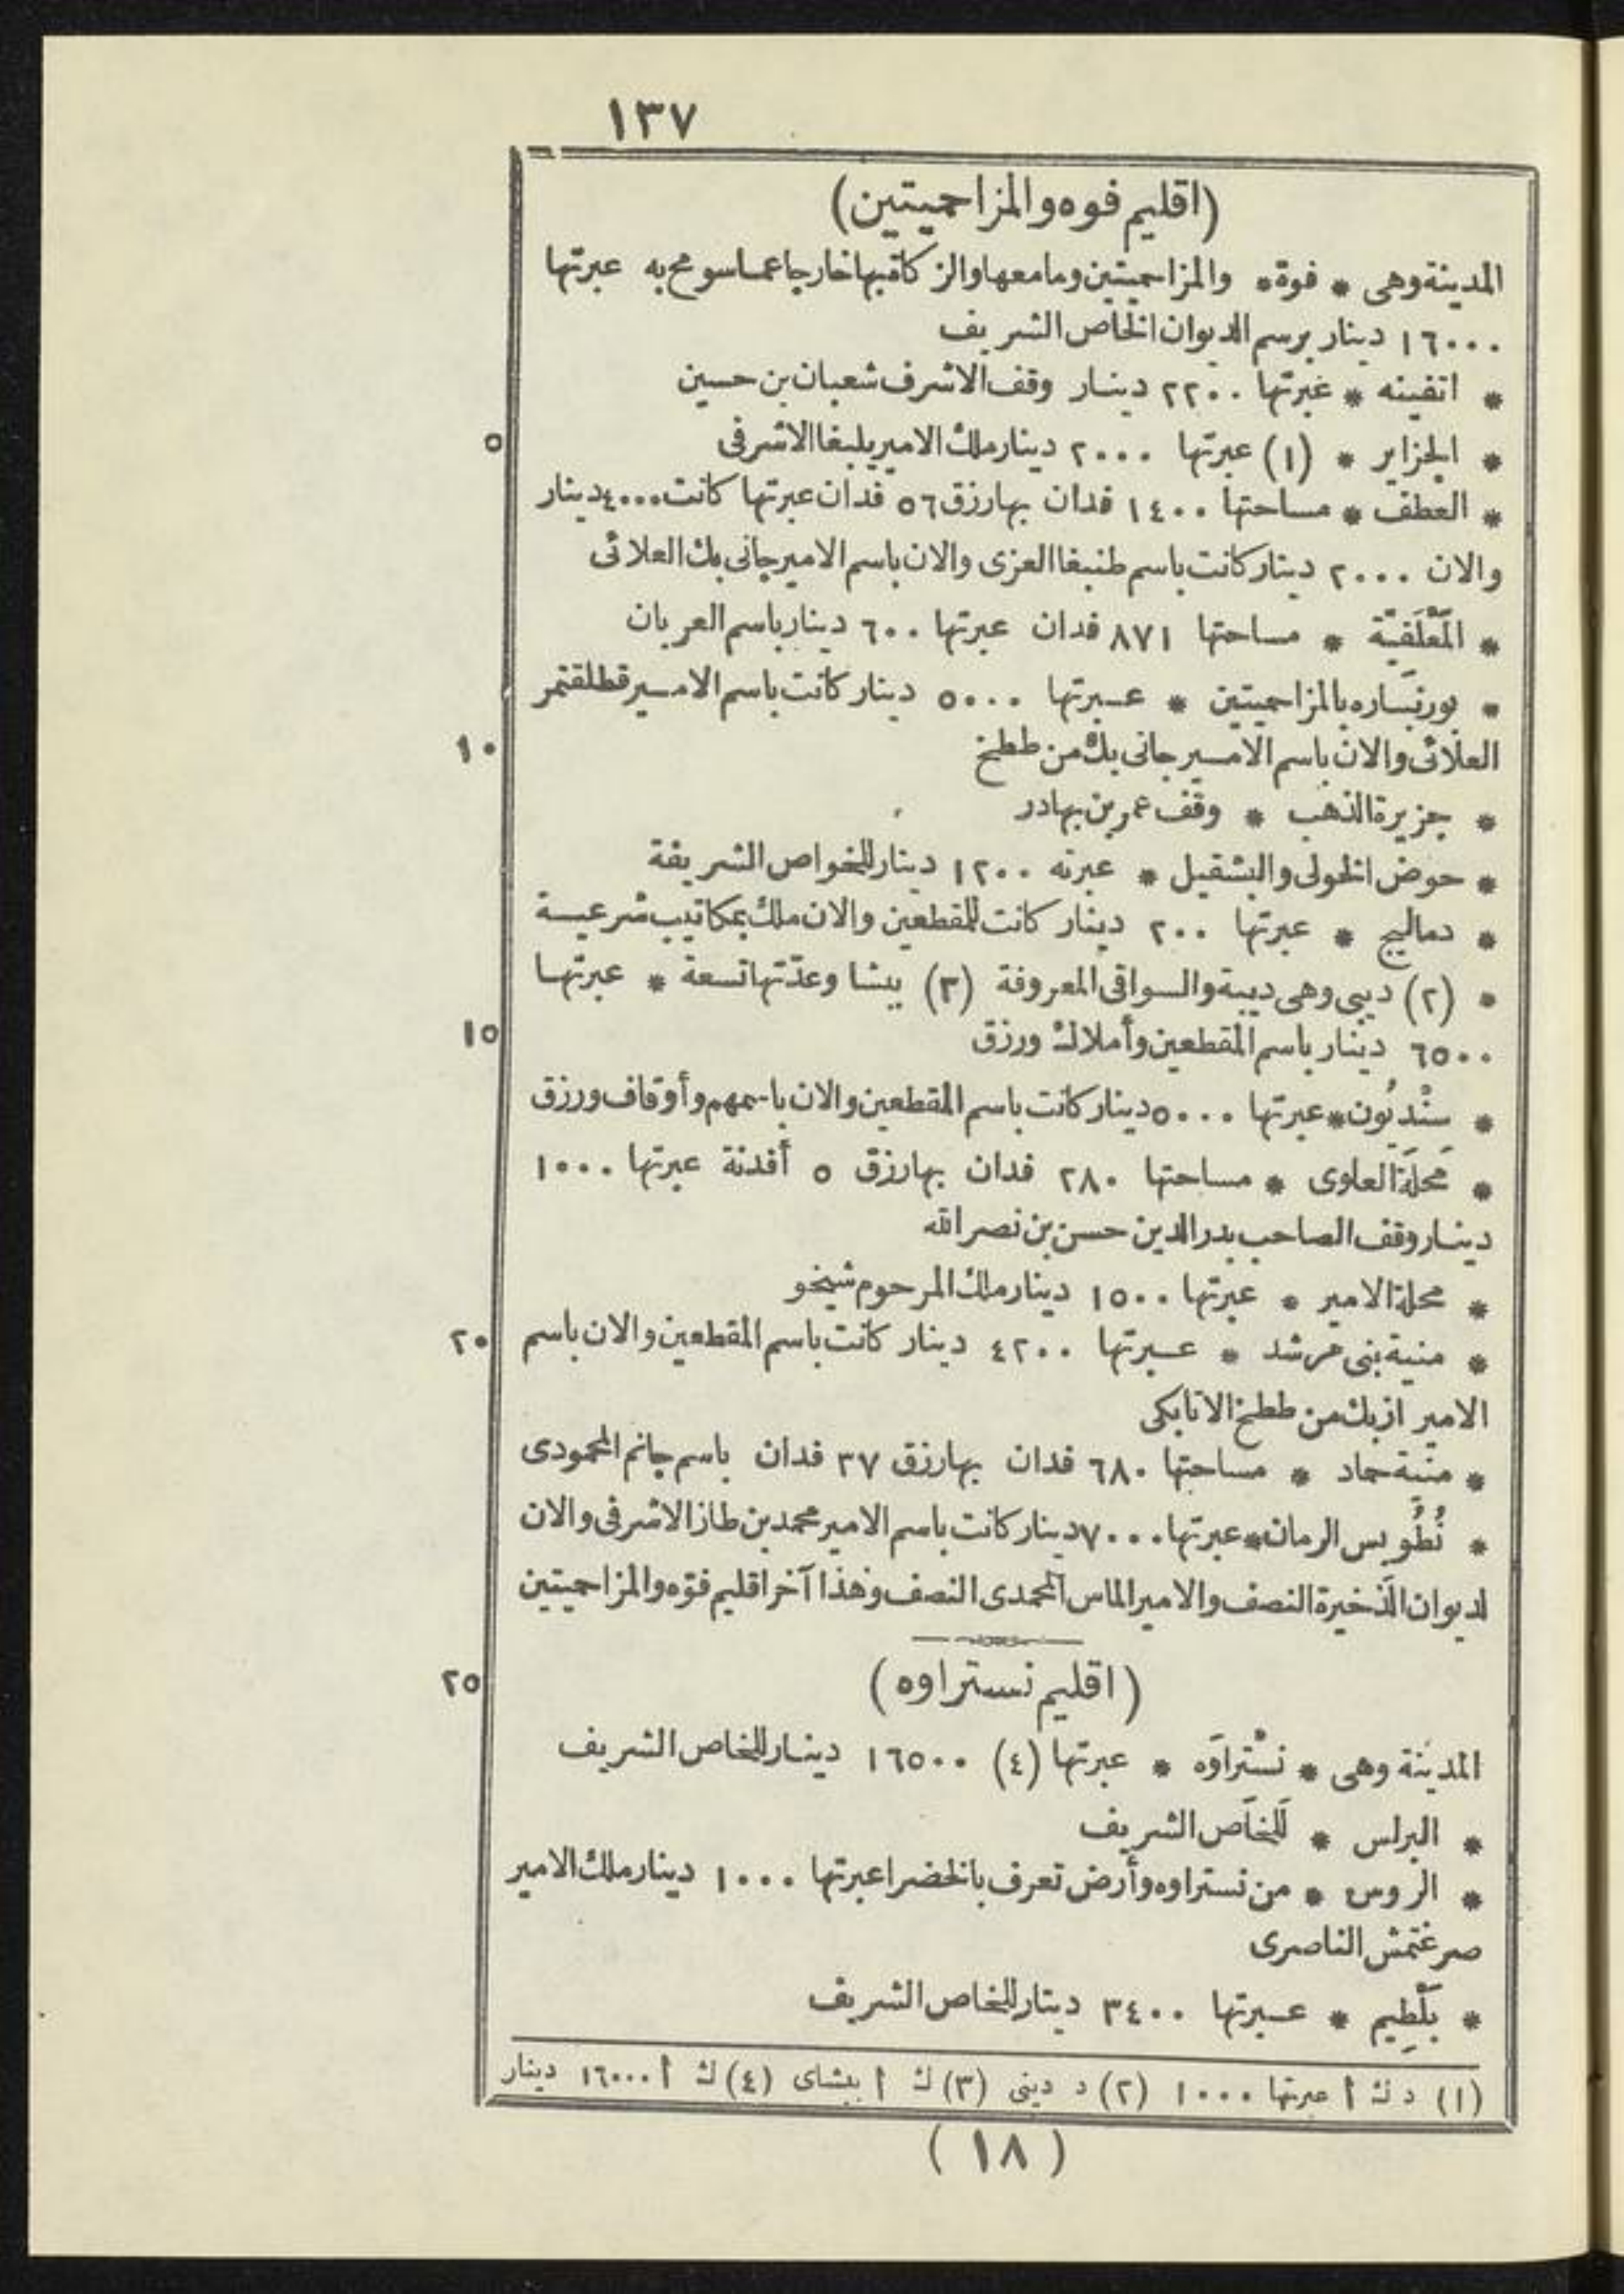 ١٣٧
(اقليم فوه والمزاحميتين)
المدينة وهى * فوة * والمزاحميتين ومامعها والزكاة بها خارجا عما سومح به عبرتها
١٦٠٠٠ دينار برسم الديوان الخاص الشريف
* اتفينه * عبرتها ٢٢٠٠ دينار وقف الاشرف شعبان بن حسين
٥
* الجزاير * (١) عبرتها ٢٠٠٠ دينار ملك الامير يلبغا الاشرفى
* العطف * مساحتها ١٤٠٠ فدان بها رزق ٥٦ فدان عبرتها كانت ٤٠٠٠ دينار
والان ٢٠٠٠ دينار كانت باسم طنبغا العزى والان باسم الامير جانى بك العلائى
* المَّعْلَقيّة * مساحتها ٨٧١ فدان عبرتها ٦٠٠ دينار باسم العربان
* بورنبَساره بالمزاحميتين * عبرتها ٥٠٠٠ دينار كانت باسم الامير قطلقتمر
١٠
العلائى والان باسم الامير جانى بك من ططخ
* جزيرة الذهب * وقف عمر بن بهادر
* حوض الخولى والبشقيل * عبرته ١٢٠٠ دينار للخواص الشريفة
* دماليج * عبرتها ٢٠٠ دينار كانت للمقطعين والان ملك بمكاتيب شرعية
* (٢) ديبى وهى ديبة والسواقى المعروفة (٣) ببشا وعدّتها تسعة * عبرتها
١٥
٦٥٠٠ دينار باسم المقطعين وأملاك ورزق
* سنْديُون * عبرتها ٥٠٠٠ دينار كانت باسم المقطعين والان باسمهم وأوقاف ورزق
* مَحلَّة العلوى * مساحتها ٢٨٠ فدان بها رزق ٥ أفدنة عبرتها ١٠٠٠
دينار وقف الصاحب بدر الدين حسن بن نصر الله
* محلة الامير * عبرتها ١٥٠٠ دينار ملك المرحوم شيخو
٢٠
* منية بنى مرشد * عبرتها ٤٢٠٠ دينار كانت باسم المقطعين والان باسم
الامير ازبك من ططخ الاتابكى
* منية حماد * مساحتها ٦٨٠ فدان بها رزق ٣٧ فدان باسم جانم المحمودى
* نُطُوبس الرمان * عبرتها ٧٠٠٠ دينار كانت باسم الامير محمد بن طاز الاشرفى والان
لديوان الذخيرة النصف والامير الماس المحمدى النصف وهذا آخر اقليم فوّه والمزاحميتين
٢٥
(اقليم نستراوه)
المدينة وهى * نسْتراوَه * عبرتها (٤) ١٦٥٠٠ دينار للخاص الشريف
* البرلس * للخاص الشريف
* الروس * من نستراوه وأرض تعرف بالخضرا عبرتها ١٠٠٠ دينار ملك الامير
صرغتمش الناصرى
* بَلْطِيم * عبرتها ٣٤٠٠ دينار للخاص الشريف
(١) د ك أ عبرتها ١٠٠٠ (٢) د دينى (٣) ك أ ببشاى (٤) ك أ ١٦٠٠٠ دينار
(١٨)